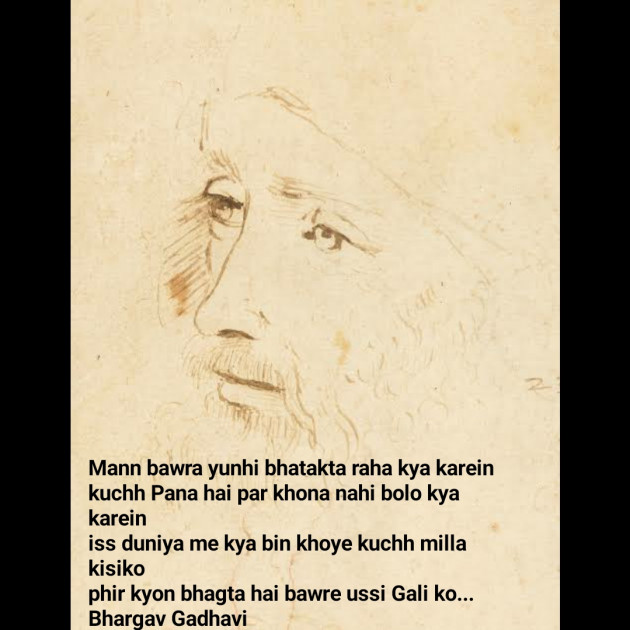 Mann bawra yunhi bhatakta raha kya karein
kuchh Pana hai par khona nahi bolo kya
karein
iss duniya me kya bin khoye kuchh milla
kisiko
phir kyon bhagta hai bawre ussi Gali ko...
Bhargav Gadhavi